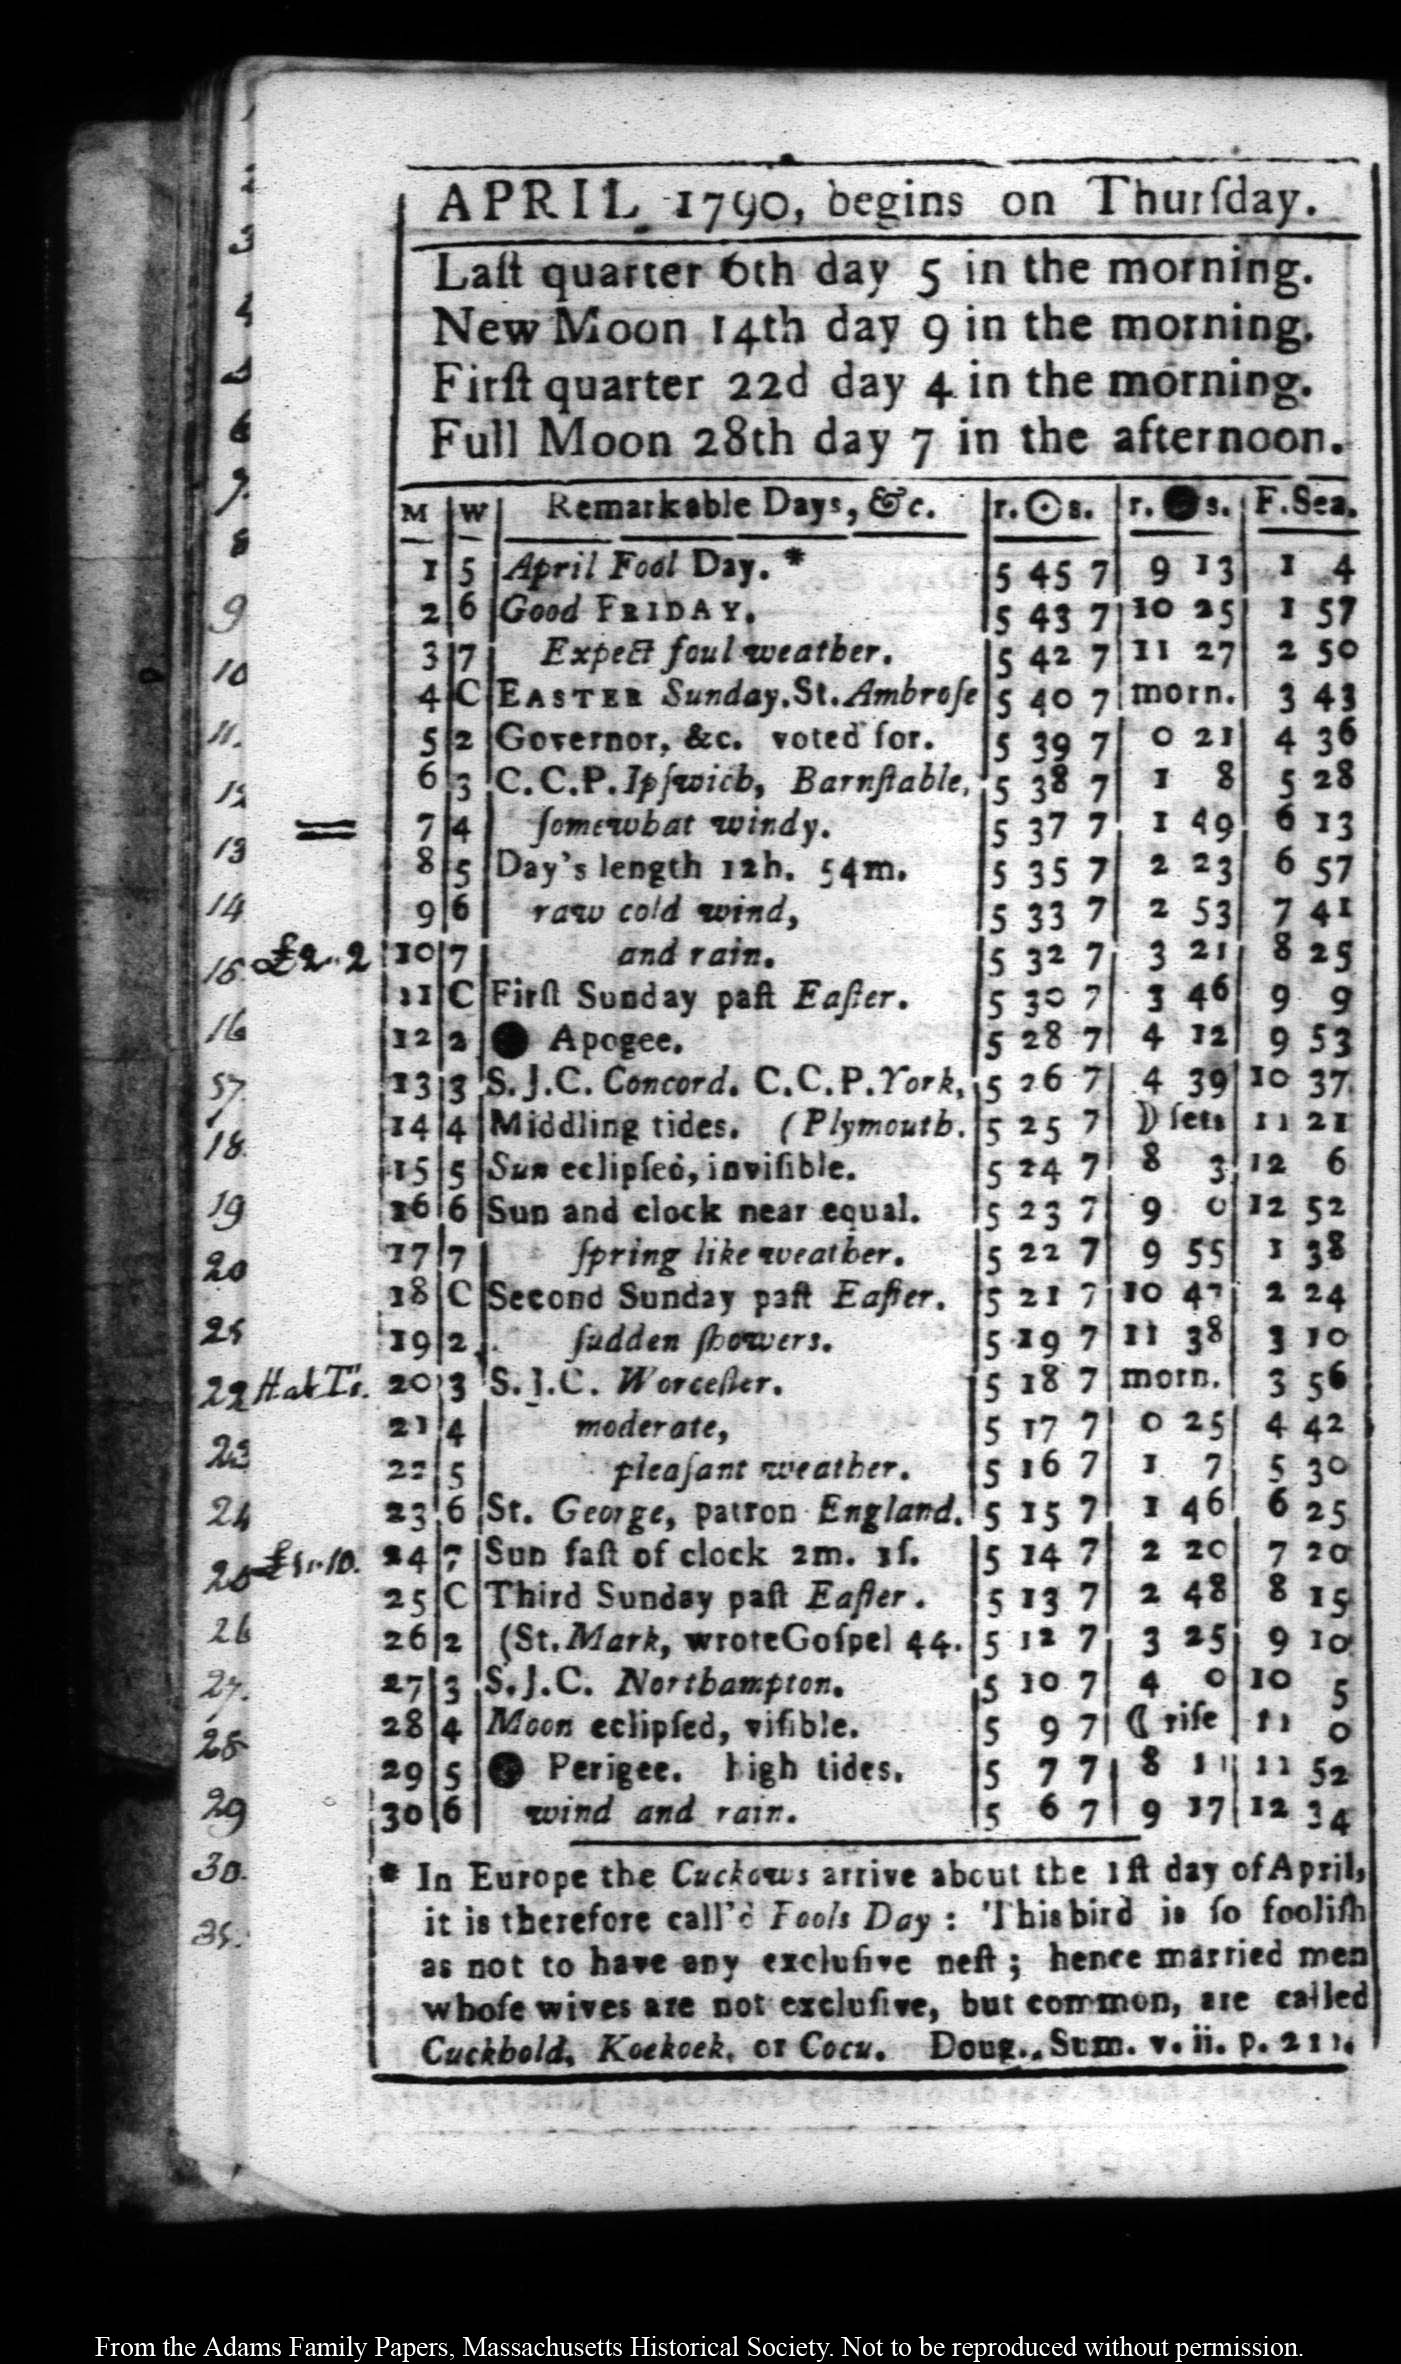 APRIL 1790, begins on Thurſday.
Laſt quarter 6th day 5 in the morning.
New Moon 14th day 9 in the morning.
Firſt quarter 22d day 4 in the morning.
Full Moon 28th day 7 in the afternoon.
M W Remarkable Days, &c. r. ☉ s. r. ● s. F. Sea.
1 5 April Fool Day. * 5 45 7 9 13 1 4
2 6 Good FRIDAY. 5 43 7 10 25 1 57
3 7 Expect foul weather. 5 42 7 11 27 2 50
4 C EASTER Sunday. St. Ambroſe 5 40 7 morn. 3 43
5 2 Governor, &c. voted for. 5 39 7 0 21 4 36
6 3 C.C.P. Ipſwich, Barnſtable, 5 38 7 1 8 5 28
= 7 4 ſomewhat windy. 5 37 7 1 49 6 13
8 5 Day's length 12h. 54m. 5 35 7 2 23 6 57
9 6 raw cold wind, 5 33 7 2 53 7 41
£2..2 10 7 and rain. 5 32 7 3 21 8 25
11 C Firſt Sunday paſt Eaſter. 5 30 7 3 46 9 9
12 2 ● Apogee. 5 28 7 4 12 9 53
13 3 S.J.C. Concord. C.C.P. York, 5 26 7 4 39 10 37
14 4 Middling tides. (Plymouth. 5 25 7 ☽ ſets 11 21
15 5 Sun eclipſed, inviſible. 5 24 7 8 3 12 6
16 6 Sun and clock near equal. 5 23 7 9 0 12 52
17 7 ſpring like weather. 5 22 7 9 55 1 38
18 C Second Sunday paſt Eaſter. 5 21 7 10 47 2 24
19 2 ſudden ſhowers. 5 19 7 11 38 3 10
20 3 S.J.C. Worceſter. 5 18 7 morn. 3 56
21 4 moderate, 5 17 7 0 25 4 42
22 5 pleaſant weather. 5 16 7 1 7 5 30
23 6 St. George, patron England. 5 15 7 1 46 6 25
24 7 Sun faſt of clock 2m. 1ſ. 5 14 7 2 20 7 20
25 C Third Sunday paſt Eaſter. 5 13 7 2 48 8 15
26 2 (St. Mark, wrote Goſpel 44. 5 12 7 3 25 9 10
27 3 S.J.C. Northampton. 5 10 7 4 0 10 5
28 4 Moon eclipſed, viſible. 5 9 7 ☾ riſe 11 0
29 5 ● Perigee. high tides. 5 7 7 8 11 52
30 6 wind and rain. 5 6 7 9 17 12 34
* In Europe the Cuckows arrive about the 1ſt day of April,
it is therefore call'd Fools Day : This bird is ſo fooliſh
as not to have any excluſive neſt ; hence married men
whoſe wives are not excluſive, but common, are called
Cuckbold, Koekoek, or Cocu. Doug. Sum. v. ii. p. 211.
3
4
5
6
7.
8
9
10
11.
12
13
14
15
16
17.
18.
19
20
21
22
23
24
25
26
27.
28
29
30.
31.
From the Adams Family Papers, Massachusetts Historical Society. Not to be reproduced without permission.